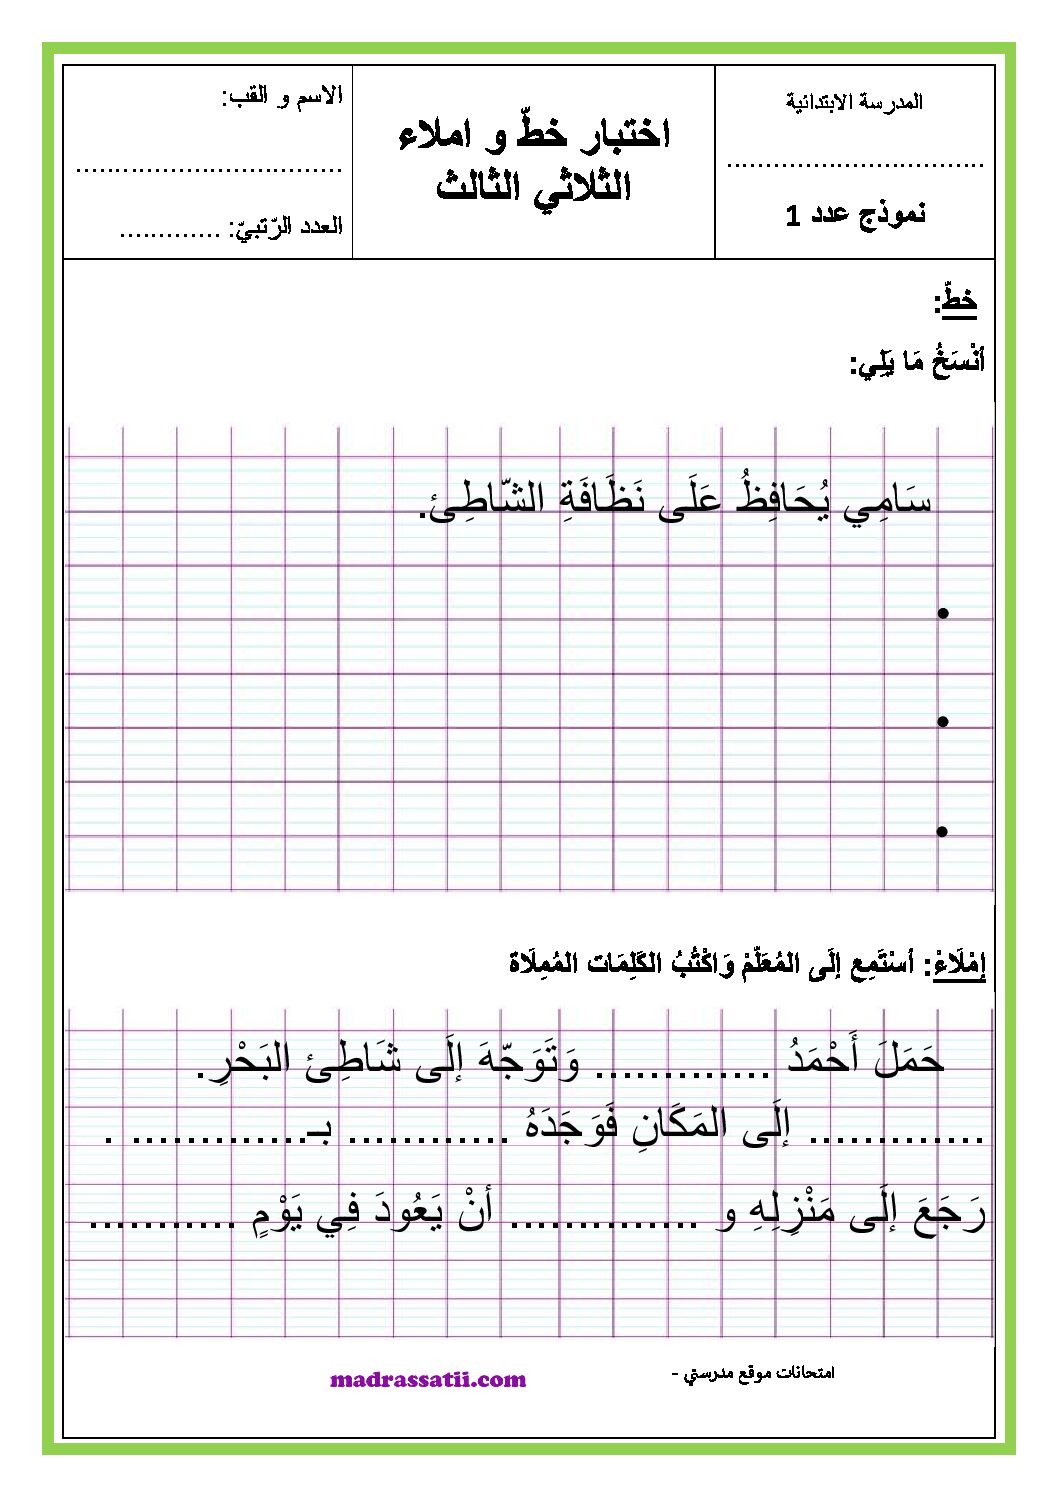 المدرسة الابتدائية
................................
نموذج عدد 1
اختبار خطّ و املاء
الثلاثي الثالث
الاسم و القب:
.................................
العدد الرّتبيّ: .............
خطّ:
أنْسَخُ مَا يَلِي:
سَامِي يُحَافِظُ عَلَى نَظَافَةِ الشّاطِئ.
•
•
•
إمْلَاءْ: أسْتَمِع إلَى المُعَلّمْ وَاكْتُبُ الكَلِمَات المُمِلَاة
حَمَلَ أَحْمَدُ ............. وَتَوَجّهَ إلَى شَاطِئ البَحْرِ.
............. إلَى المَكَانِ فَوَجَدَهُ ............ بـ............. .
رَجَعَ إلَى مَنْزِلِهِ و .............. أنْ يَعُودَ فِي يَوْمٍ ...........
امتحانات موقع مدرستي - madrassatii.com